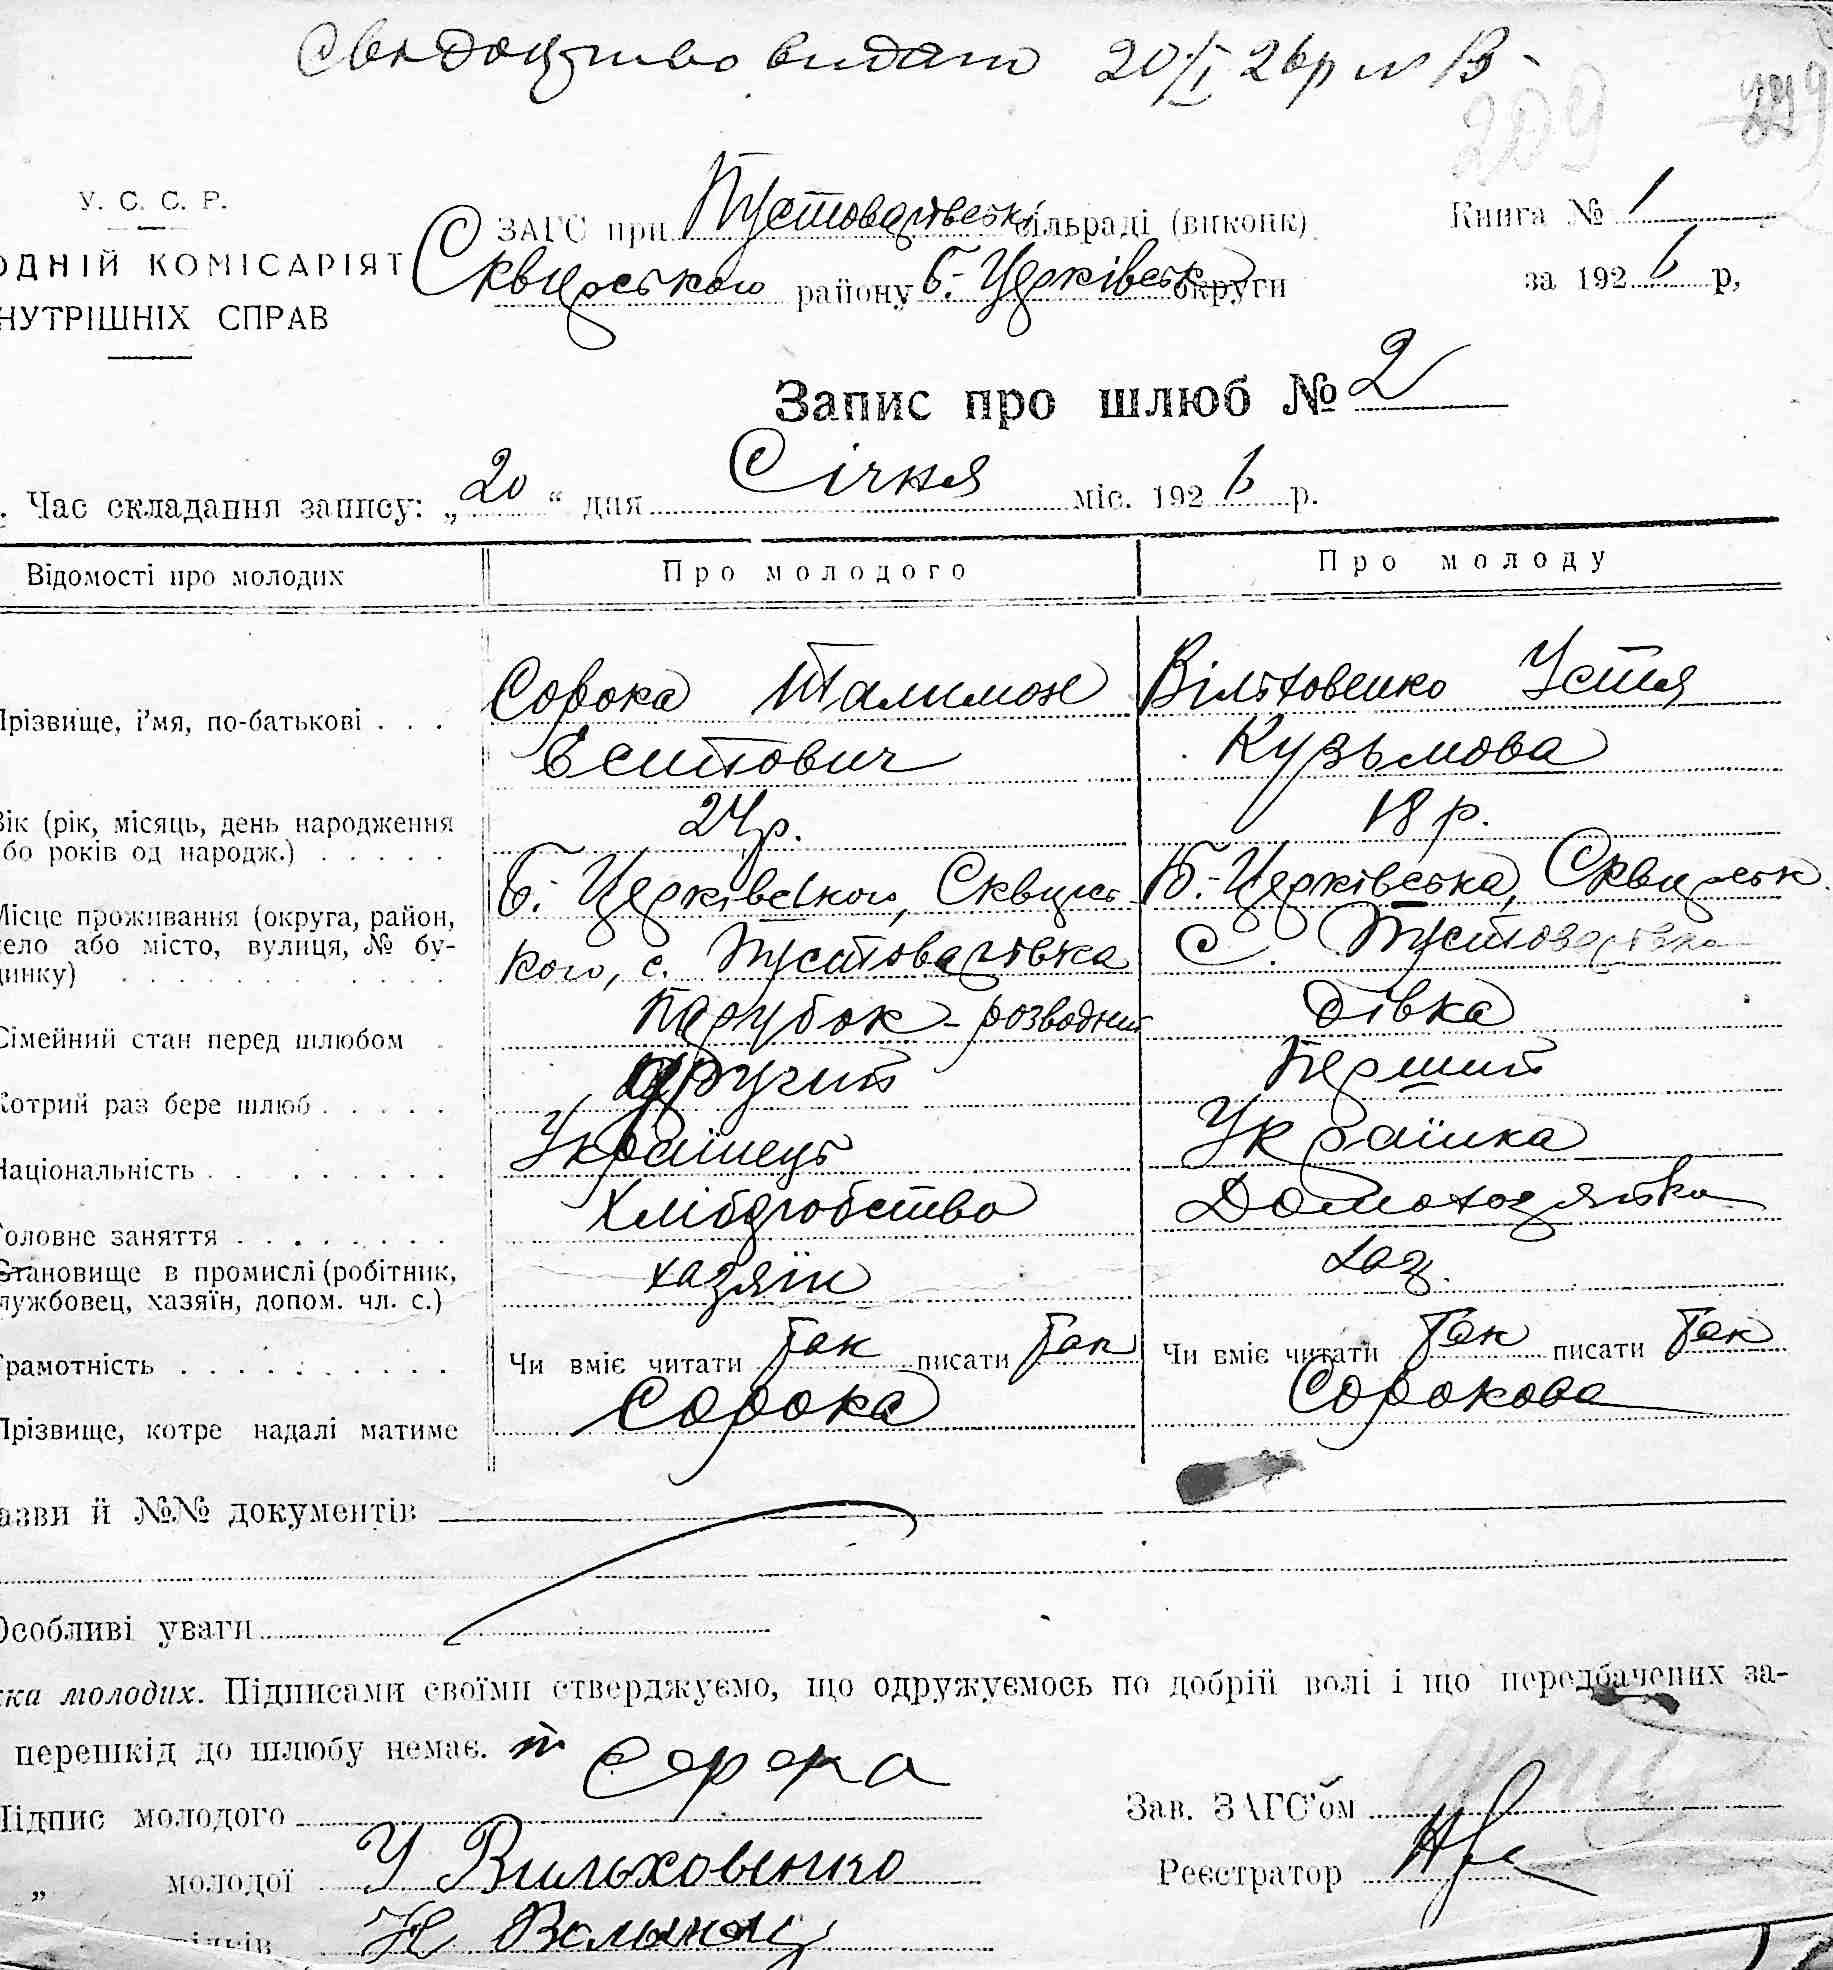 Свидоцтво видано 20/I 26р № 13
209
У. С. С. Р.
ОДНІЙ КОМІСАРІЯТ
НУТРІШНІХ СПРАВ
ЗАГС при Пустоварівській сільраді (виконк)
Книга № 1
Сквирського району Б.-Церківської округи
за 1926 р,
Запис про шлюб № 2
. Час складання запису: „20“ дня Січня міс. 1926 р.
Відомості про молодих
Про молодого
Про молоду
Прізвище, і'мя, по-батькові . . .
Сорока Палимон
Вільховенко Устя
Єситович
Кузьмова
Вік (рік, місяць, день народження
або років од народж.) . . . . .
24р.
18 р.
Місце проживання (округа, район,
село або місто, вулиця, № бу-
динку) . . . . . . . . . . . .
Б.-Церківського, Сквирсь-
кого, с. Пустоварівка
Б.-Церківська, Сквирськ.
с. Пустоварівка
Сімейний стан перед шлюбом .
Парубок - розводний
дівка
Котрий раз бере шлюб . . . . .
другий
Перший
Національність . . . . . . . . .
Українець
Українка
Головне заняття . . . . . . . .
Хліборобство
Домохозяйка
Становище в промислі (робітник,
службовец, хазяїн, допом. чл. с.)
хазяїн
хаз.
Грамотність . . . . . . . . . .
Чи вміє читати Так писати Так
Чи вміє читати Так писати Так
Прізвище, котре надалі матиме
Сорока
Сорокова
азви й №№ документів
Особливі уваги
ка молодих. Підписами своїми стверджуємо, що одружуємось по добрій волі і що передбачених за-
перешкід до шлюбу немає.
Підпис молодого П Сорока
Зав. ЗАГС'ом
„ молодої У Вильховенко
Реєстратор
ідків